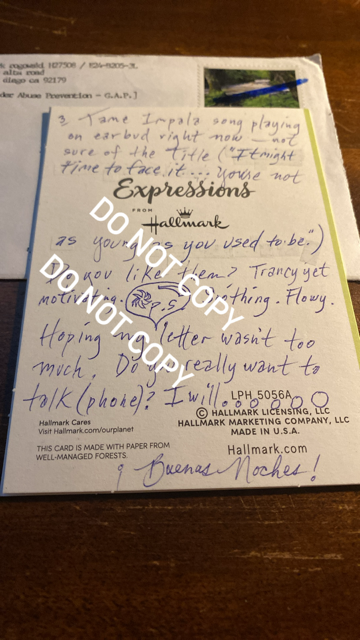 rogowald H27508 / E24-B205-3L
alta road
diego ca 92179
der Abuse Prevention - G.A.P.]
& Tame Impala song playing
on earbud right now — not
sure of the title ("It might
time to face it... you're not
Expressions
FROM
Hallmark
as young as you used to be.")
Do you like them? Trancy yet
motivating. P.S. Flowy.
Hoping my letter wasn't too
much. Do you really want to
talk (phone)? I will.
LPH 5056A
© HALLMARK LICENSING, LLC
HALLMARK MARKETING COMPANY, LLC
MADE IN U.S.A.
Hallmark Cares
Visit Hallmark.com/ourplanet
THIS CARD IS MADE WITH PAPER FROM
WELL-MANAGED FORESTS.
Hallmark.com
Buenas Noches!
DO NOT COPY
DO NOT COPY